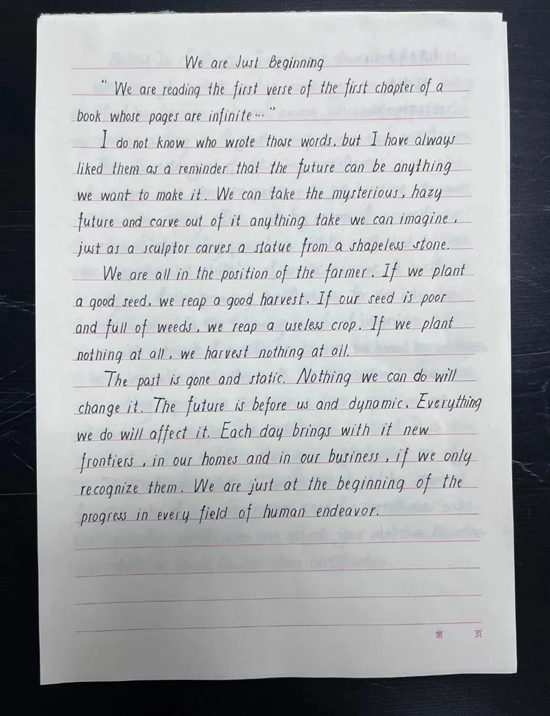 We are Just Beginning
" We are reading the first verse of the first chapter of a
book whose pages are infinite ··· "
I do not know who wrote those words, but I have always
liked them as a reminder that the future can be anything
we want to make it. We can take the mysterious, hazy
future and carve out of it anything take we can imagine,
just as a sculptor carves a statue from a shapeless stone.
We are all in the position of the farmer. If we plant
a good seed, we reap a good harvest. If our seed is poor
and full of weeds, we reap a useless crop. If we plant
nothing at all, we harvest nothing at all.
The past is gone and static. Nothing we can do will
change it. The future is before us and dynamic. Everything
we do will affect it. Each day brings with it new
frontiers, in our homes and in our business, if we only
recognize them. We are just at the beginning of the
progress in every field of human endeavor.
第 页